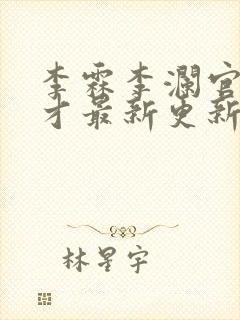 李霖李澜官
才最新更新
林星宇